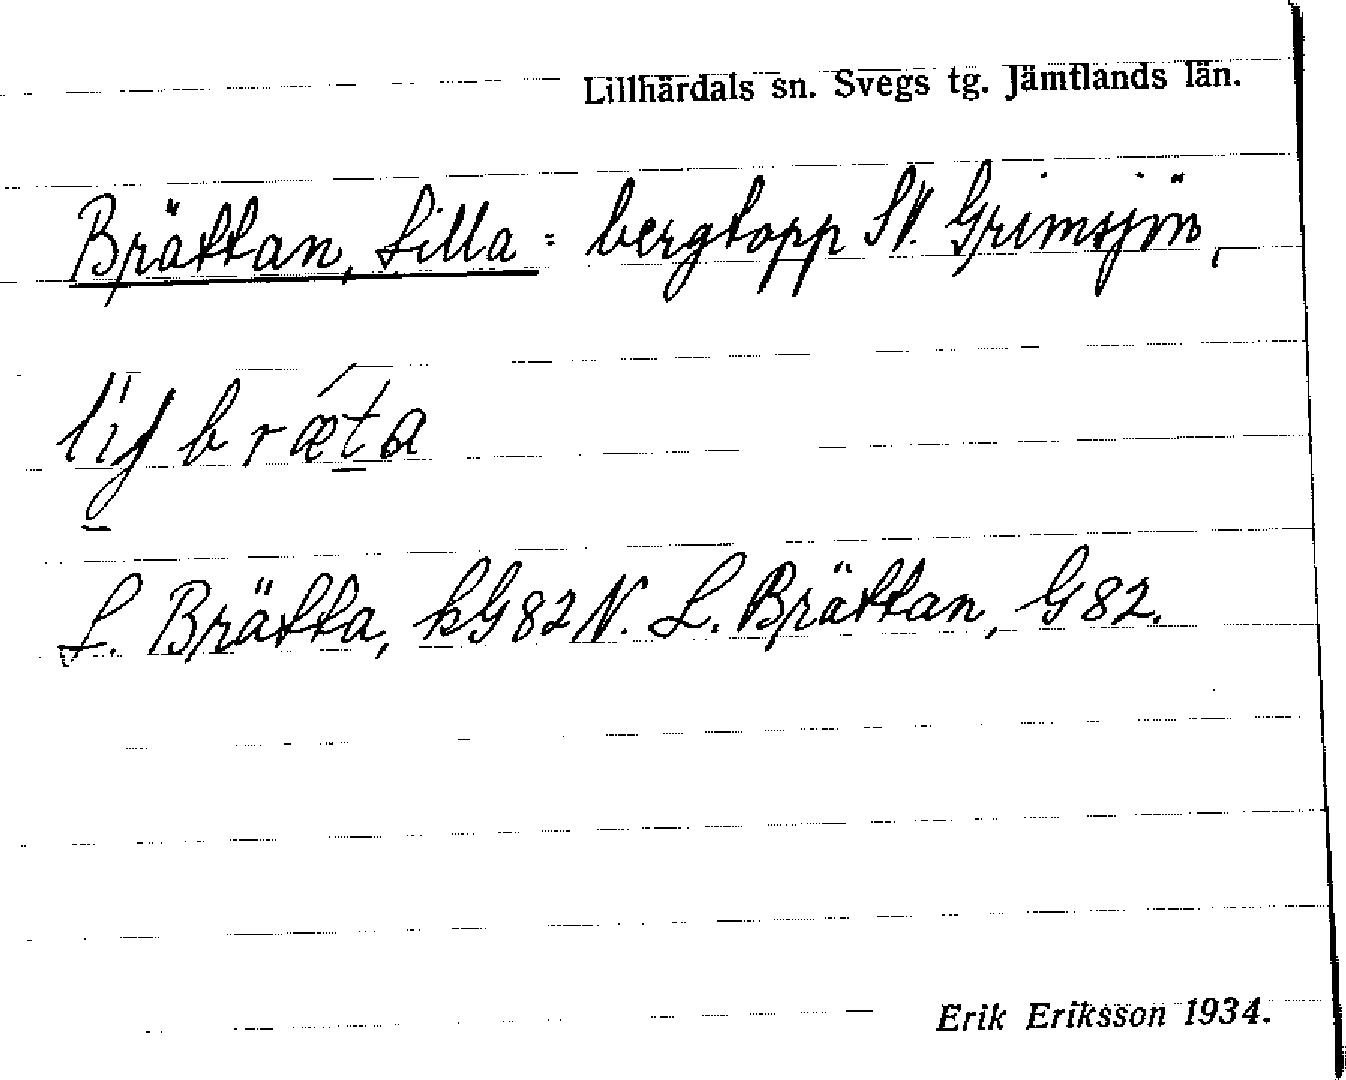 Lillhärdals sn. Svegs tg. Jämtlands län.
Brättan, Lilla = bergtopp SV. Grimsjön,
bræta
L. Brätta, kG82N. L. Brättan, G82.
Erik Eriksson 1934.